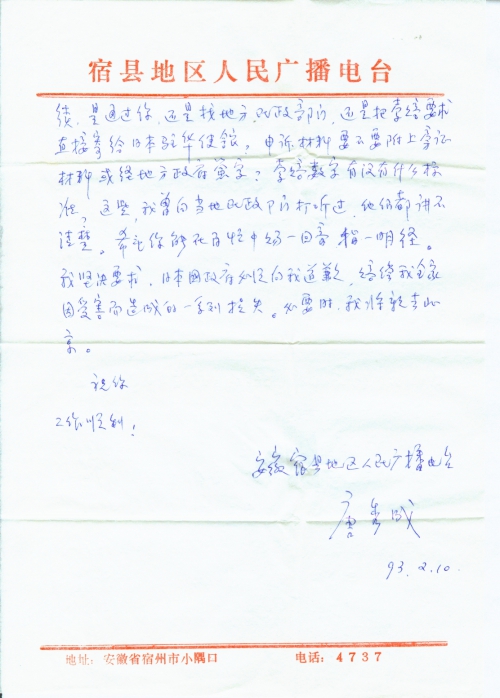 宿县地区人民广播电台
续,是通过你,还是找地方,民政部门,还是把索赔要求
直接寄给日本驻华使馆。申诉材料要不要附上旁证
材料或经地方政府签字?索赔数字有没有什么标
准,这些,我曾向当地民政部门打听过,他们都讲不
清楚。希望你能在百忙中给一回音,指一明径。
我坚决要求,日本国政府必须向我道歉,赔偿我全家
因受害而造成的一系列损失。必要时,我将亲去北
京。
祝你
工作顺利!
安徽宿县地区人民广播电台
唐 成
93.2.10.
地址:安徽省宿州市小隅口 电话:4737